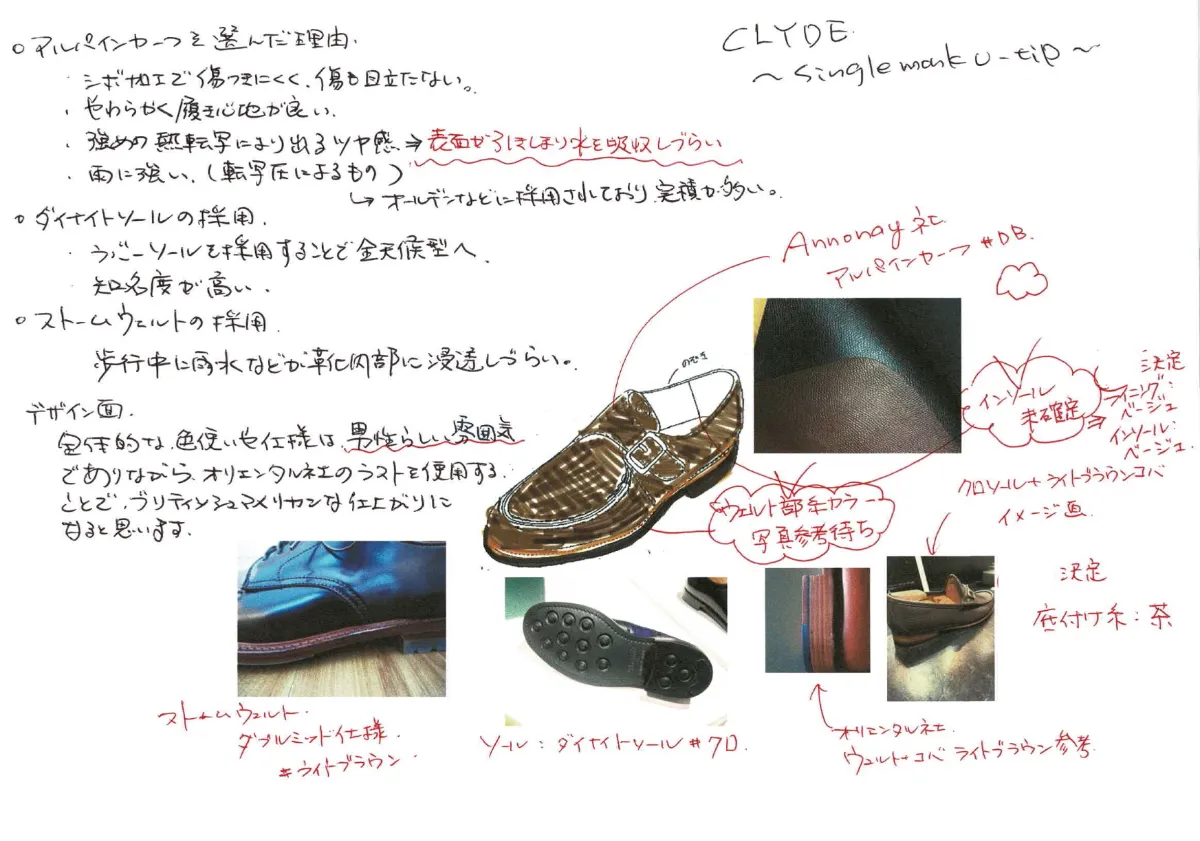 CLYDE
～single monk U-tip～
○アルパインカーフを選んだ理由.
・シボ加工で傷つきにくく、傷も目立たない。
・やわらかく履き心地が良い.
・強めの熱転写により出るツヤ感⇒表面が引きしまり水を吸収しづらい
・雨に強い.(転写圧によるもの)
↳オールデンなどに採用されており実積が多い。
○ダイナイトソールの採用.
・ラバーソールを採用することで全天候型へ.
・知名度が高い.
○ストームウェルトの採用.
歩行中に雨水などが革化内部に浸透しづらい。
デザイン面.
全体的な色使いや仕様は、男性らしい雰囲気
でありながら、オリエンタル社のラストを使用する
ことで、ブリティッシュアメリカンな仕上がりに
なると思います.
Annonay社
アルパインカーフ #DB.
のせき
インソール
未確定
決定
ライニング:
ベージュ
インソール:
ベージュ.
ウェルト部糸カラー
写真参考待ち
クロソール+ライトブラウンコバ
イメージ画
決定
底付け糸:茶
ストームウェルト.
ダブルミッド仕様.
#ライトブラウン
ソール:ダイナイトソール #クロ.
オリエンタル社.
ウェルト+コバ ライトブラウン参考.